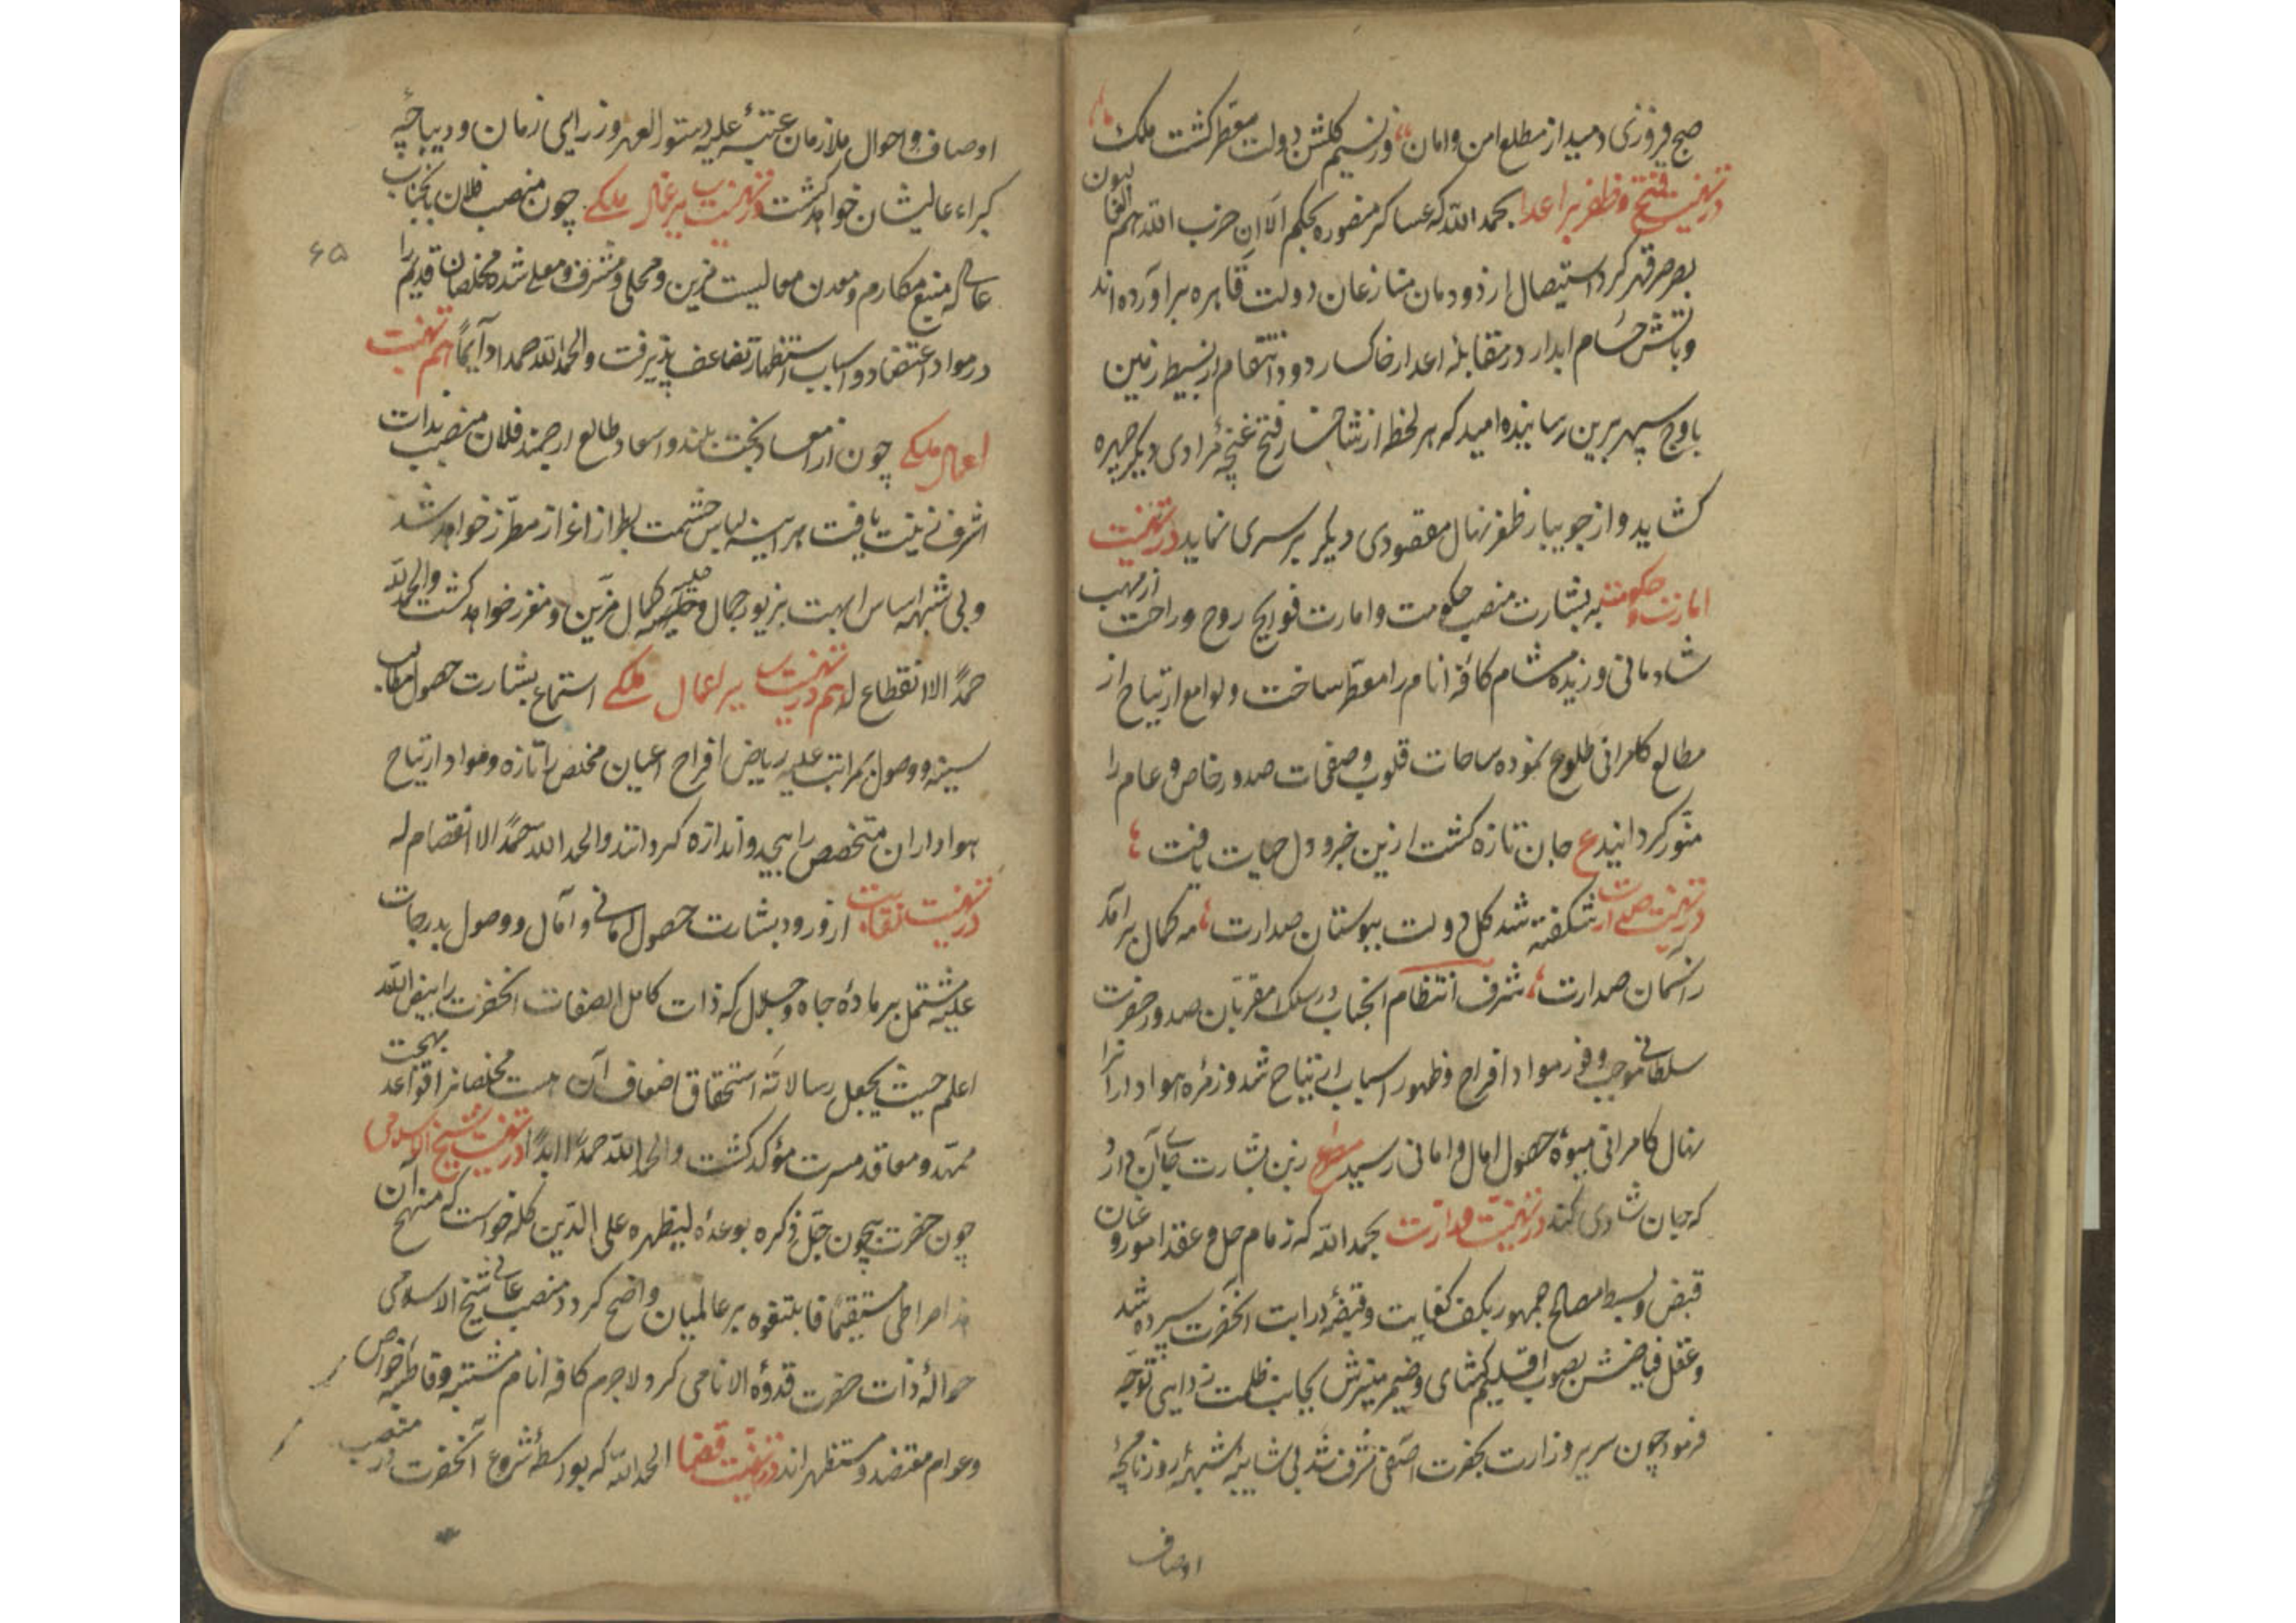 صبح فیروزی دمید از مطلع امن و امان وز نسیم گلشن دولت معطر گشت ملک
در تهنیت فتح و ظفر بر اعدا بحمد الله که عساکر منصوره بحکم الا ان حزب الله هم الغالبون
بصرصر قهر گرد استیصال از دودمان منازعان دولت قاهره برآورده اند
و بآتش حسام ابدار در مقابلهٔ اعدار خاکسار دود انتقام از بسیط زمین
باوج سپهر برین رسانیده امید که هر لحظه از شاخسار فتح غنچهٔ مرادی دیگر چهره
گشاید و از جویبار ظفر نهال مقصودی دیگر بر سری نماید در تهنیت
امارت و حکومت به بشارت منصب حکومت و امارت فوایح روح و راحت از مهب
شادمانی وزیده مشام کافهٔ انام را معطر ساخت و لوامع ارتیاح از
مطالع کامرانی طلوع نموده ساحات قلوب و صفحات صدور خاص و عام را
منور گردانید ع جان تازه گشت ازین خبر و دل حیات یافت
در تهنیت صدارت شکفته شد گل دولت ببوستان صدارت مه کمال برآمد
ز آسمان صدارت شرف انتظام آنجناب در سلک مقربان صدور حضرت
سلطانی موجب وفور مواد افراح و ظهور اسباب ارتیاح شد و زمرهٔ هواداران را
نهال کامرانی بمیوهٔ حصول امال و امانی رسید مصراع زین بشارت جای آن دارد
که جان شادی کند در تهنیت وزارت بحمد الله که زمام حل و عقد امور و عنان
قبض و بسط مصالح جمهور بکف کفایت و قبضهٔ درایت آنحضرت سپرده شد
و عقل فیاضش بصوب اقلیم گشای و ضمیر منیرش بجانب ظلمت زدایی توجه
فرمود چون سریر وزارت بحضرت آصفی مشرف شد بی شایبهٔ شبهه روزنامچهٔ
اوصاف
اوصاف و احوال ملازمان عتبهٔ علیه دستور العهد وزرای زمان و دیباچهٔ
کبراء عالیشان خواهد گشت در تهنیت میرغال ملکی چون منصب فلان بآنجناب
عالی که منبع مکارم و معدن معالیست مزین و محلی و مشرف و معلی شده مخلصان قدیم را
در مواد اعتضاد و اسباب استظهار تضاعف پذیرفت والحمد لله حمدا دآیماً هم تهنیت
اعمال ملکی چون از مساعد بخت بلند و اسعاد طالع ارجمند فلان منصب بذات
اشرف زینت یافت هر آینه لباس حشمت بطراز اعزاز مطرز خواهد شد
و بی شبهه اساس ابهت بزیور جمال و حلیه کمال مزین و مقرر خواهد گشت والحمد لله
حمدً الا انقطاع له هم در تهنیت میر اعمال ملکی استماع بشارت حصول مطالب
سنیه و وصول بمراتب علیه ریاض افراح اعیان مخلص را تازه و مواد ارتیاح
هواداران متخصص را بیحد و اندازه گردانند والحمد لله حمدً الا انفصام له
در تهنیت نقابت از ورود بشارت حصول امانی و آمال و وصول بدرجات
علیه مشتمل بر مادهٔ جاه و جلال که ذات کامل الصفات آنحضرت را بفیض الله
اعلم حیث یجعل رسالاته استحقاق اضعاف آن هست مخلصانرا قواعد بهجت
ممهد و معاقد مسرت مؤکد گشت والحمد لله حمدً ابدًا در تهنیت شیخ الاسلامی
چون حضرت بیچون جل ذکره بوعدهٔ لیظهره علی الدین کله خواست که منهج آن
هذا صراطی مستقیمًا فاتبعوه بر عالمیان واضح گردد منصب عالی شیخ الاسلامی
حوالهٔ ذات حضرت قدوة الانامی کرد لاجرم کافه انام مشتبه و قاطبه خواص
و عوام معتضد و مستظهر اند در تهنیت قضا الحمد لله که بواسطهٔ شروع آنحضرت در منصب
۶۵